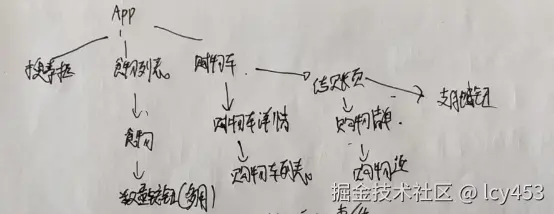 App
搜索框 食物列表。 购物车 结账页 支付按钮
食物 购物车详情 购物清单.
数量按钮(多用) 购物车列表。 购物
掘金技术社区 @ lcy453